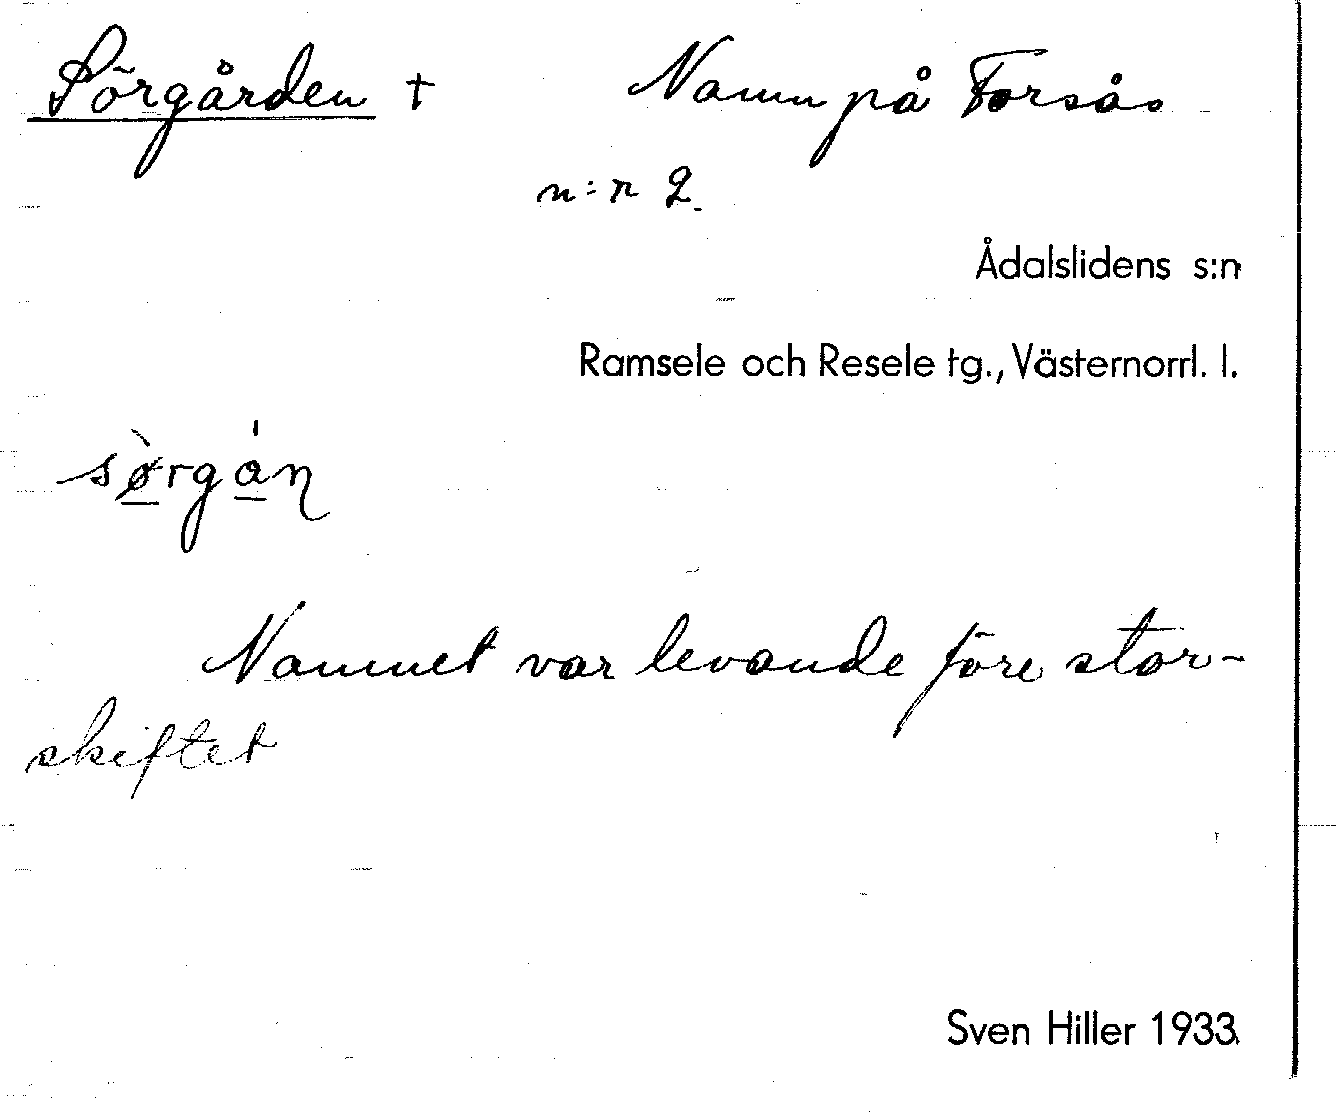 Sörgården † Namn på Forsås
n:r 2.
Ådalslidens s:n
Ramsele och Resele tg., Västernorrl. l.
sø̱̀rgá̱ɳ
Namnet var levande före stor-
skiftet
Sven Hiller 1933.